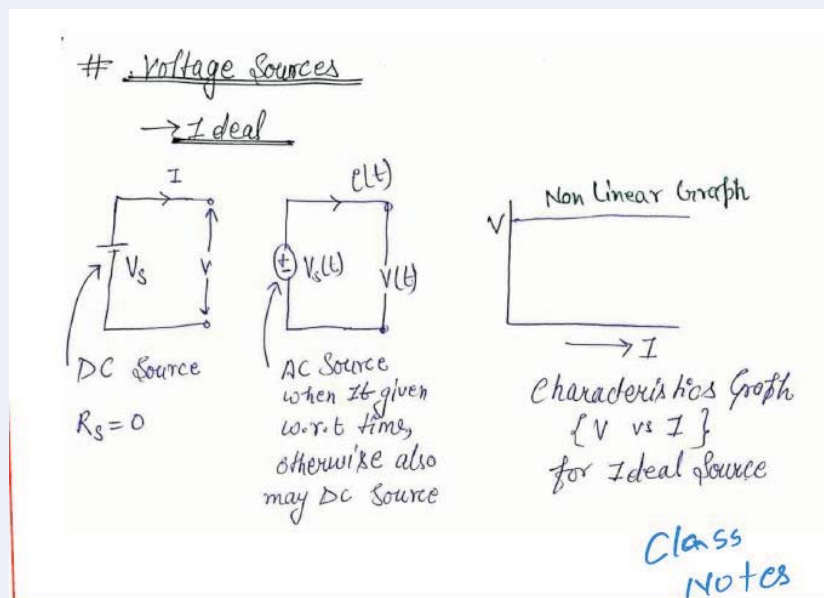 # Voltage Sources
→ Ideal
I
Vs
V
DC Source
Rs = 0
i(t)
Vs(t)
V(t)
AC Source
when It given
w.r.t time,
otherwise also
may DC Source
Non Linear Graph
V
→ I
Characteristics Graph
{V vs I}
for Ideal Source
Class
Notes